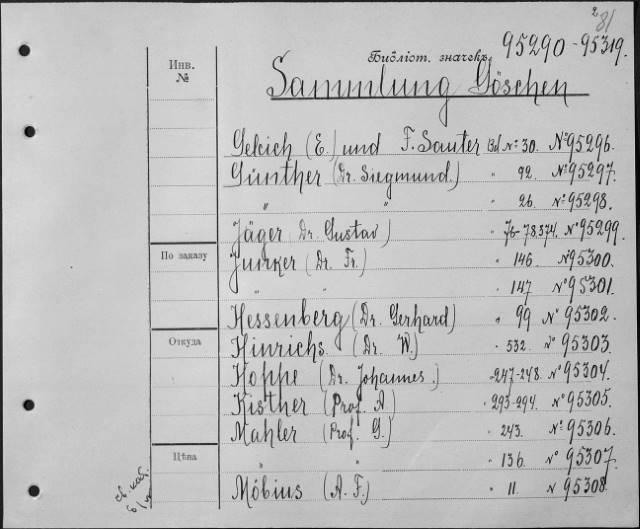 2
81
95290-95319.
Библіот. значекъ
Инв.
№
Sammlung Göschen
Gelcich (E.) und F. Sauter Bd № 30. № 95296.
Günther (Dr. Siegmund.) " 92. № 95297.
" " " 26. № 95298.
Jäger (Dr. Gustav) " 76-78.374. № 95299.
По заказу
Junker (Dr. Fr.) " 146. № 95300.
" " " 147 № 95301.
Hessenberg (Dr. Gerhard) " 99 № 95302.
Откуда
Hinrichs (Dr. W.) " 532. № 95303.
Hoppe (Dr. Johannes.) " 247-248. № 95304.
Kistner (Prof. A) " 293-294. № 95305.
Mahler (Prof. G.) " 243. № 95306.
Цѣна
" " " 136. № 95307.
Möbius (A. F.) " 11. № 95308.